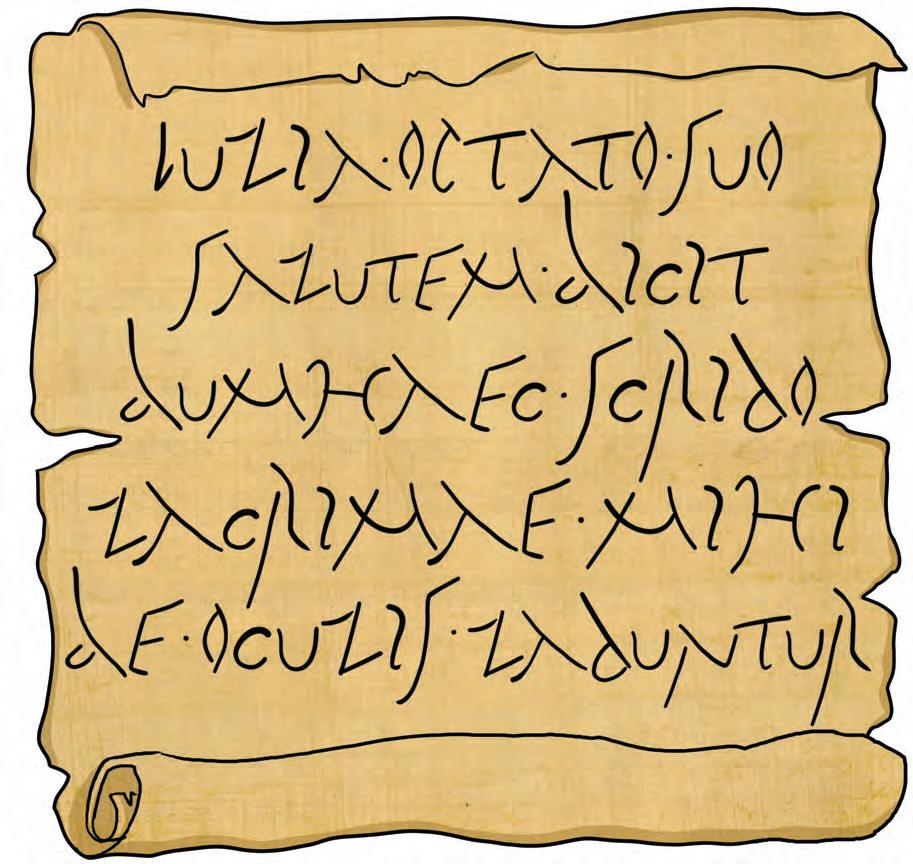 IULIA·OPTATO·SUO
SALUTEM·DICIT
DUMHAEC·SCRIBO
LACRIMAE·MIHI
DE·OCULIS·LABUNTUR